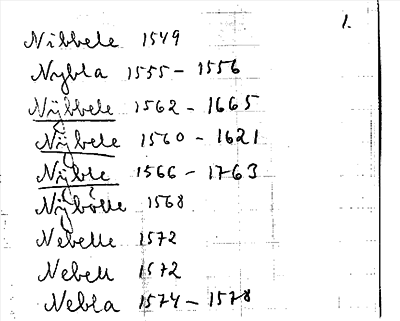 1.
Nibbele 1549
Nybla 1555 - 1556
Nÿbbele 1562 - 1665
Nÿbele 1560 - 1621
Nÿble 1566 - 1763
Nÿbölle 1568
Nebelle 1572
Nebell 1572
Nebla 1574 - 1578